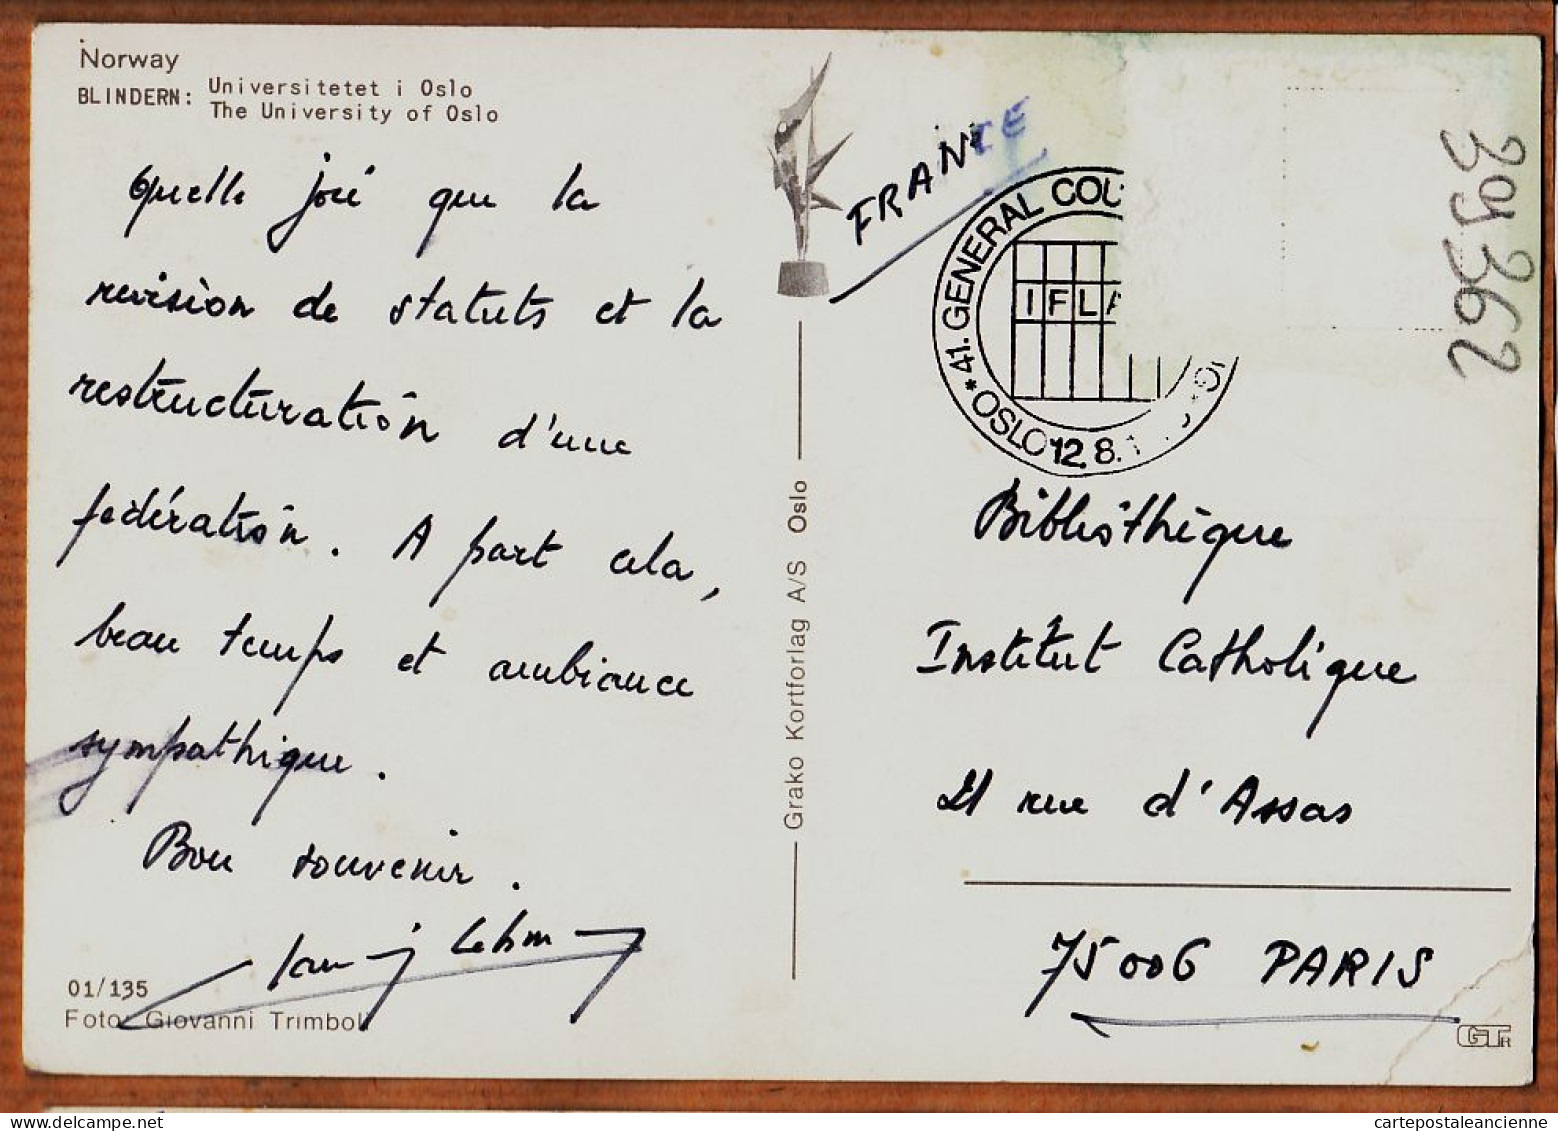 Norway
BLINDERN: Universitetet i Oslo
The University of Oslo
Quelle joie que la
revision de statuts et la
restructuration d'une
fédération. A part cela,
beau temps et ambiance
sympathique.
Bon souvenir.
01/135
Foto: Giovanni Trimboli
Grako Kortforlag A/S Oslo
FRANCE
*41. GENERAL COU
IFLA
*OSLO 12.8.1
39362
Bibliothèque
Institut Catholique
21 rue d'Assas
75006 PARIS
cartepostaleancienne